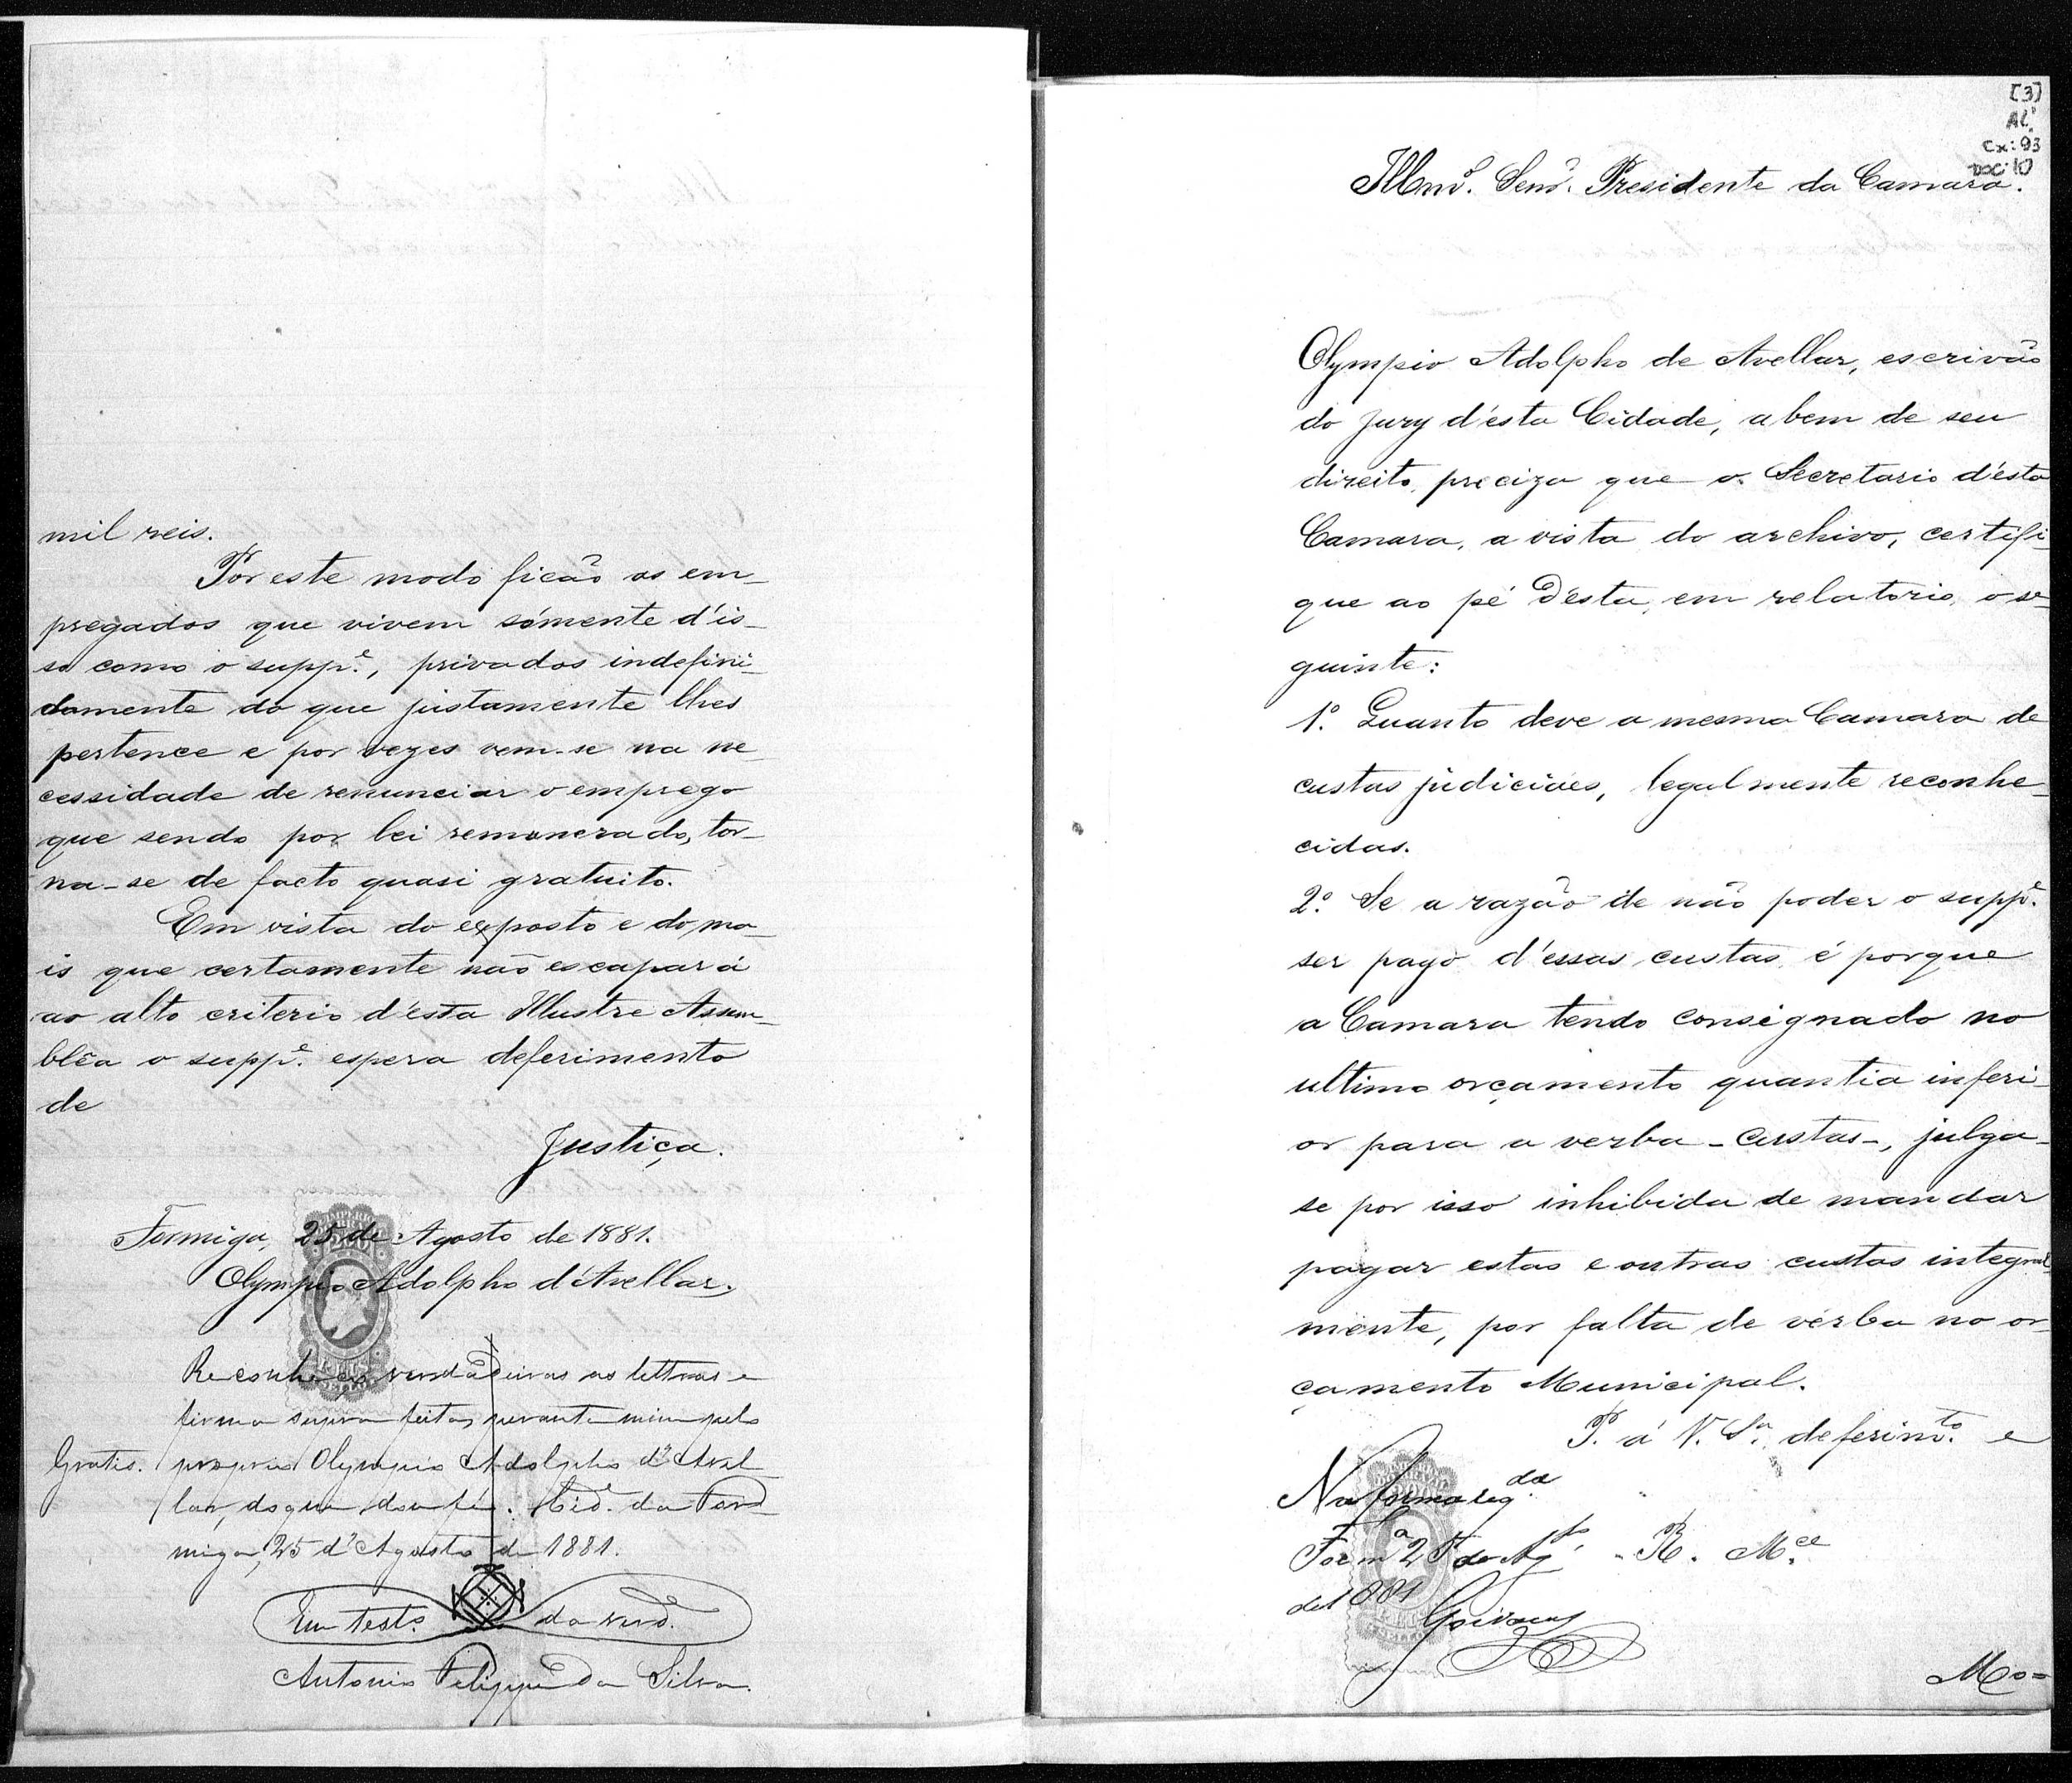 mil reis.
Por este modo ficão os em-
pregados que vivem sómente d'is-
so como o suppe., privados indefini-
damente do que justamente lhes
pertence e por vezes vem-se na ne-
cessidade de renunciar o emprego
que sendo por lei remunerado, tor-
na-se de facto quasi gratuito.
Em vista do exposto e do ma-
is que certamente não escapará
ao alto criterio d'ésta Illustre Assem-
blêa o suppe. espera deferimento
de
Justiça.
Formiga, 25 de Agosto de 1881.
Olympio Adolpho d'Avellar.
Reconheço verdadeiras as lettras e
firma supra feitas perante mim pelo
Gratis. proprio Olympio Adolpho d'Avel
lar, do que dou fé. Cide. da For-
miga, 25 d'Agosto de 1881.
Em testo. da verd.
Antonio Felippe da Silva.
[3]
AL.
Cx: 93
Doc: 10
Illmo. Senr. Presidente da Camara.
Olympio Adolpho de Avellar, escrivão
do Jury d'ésta Cidade, a bem de seu
direito, preciza que o Secretario d'ésta
Camara, a vista do archivo, certifi-
que ao pé d'ésta, em relatorio, o se-
guinte:
1º. Quanto deve a mesma Camara de
custas judiciáes, legalmente reconhe-
cidas.
2º. Se a razão de não poder o suppe.
ser pago d'éssas custas é porque
a Camara tendo consignado no
ultimo orçamento quantia inferi-
or para a verba - Custas -, julga-
se por isso inhibida de mandar
pagar estas e outras custas integral-
mente, por falta de vérba no or-
çamento Municipal.
P. á V. Sa. deferimto. e
Na forma reqda.
Forma 25 de Agto. R. Mce.
de 1881
Mo=